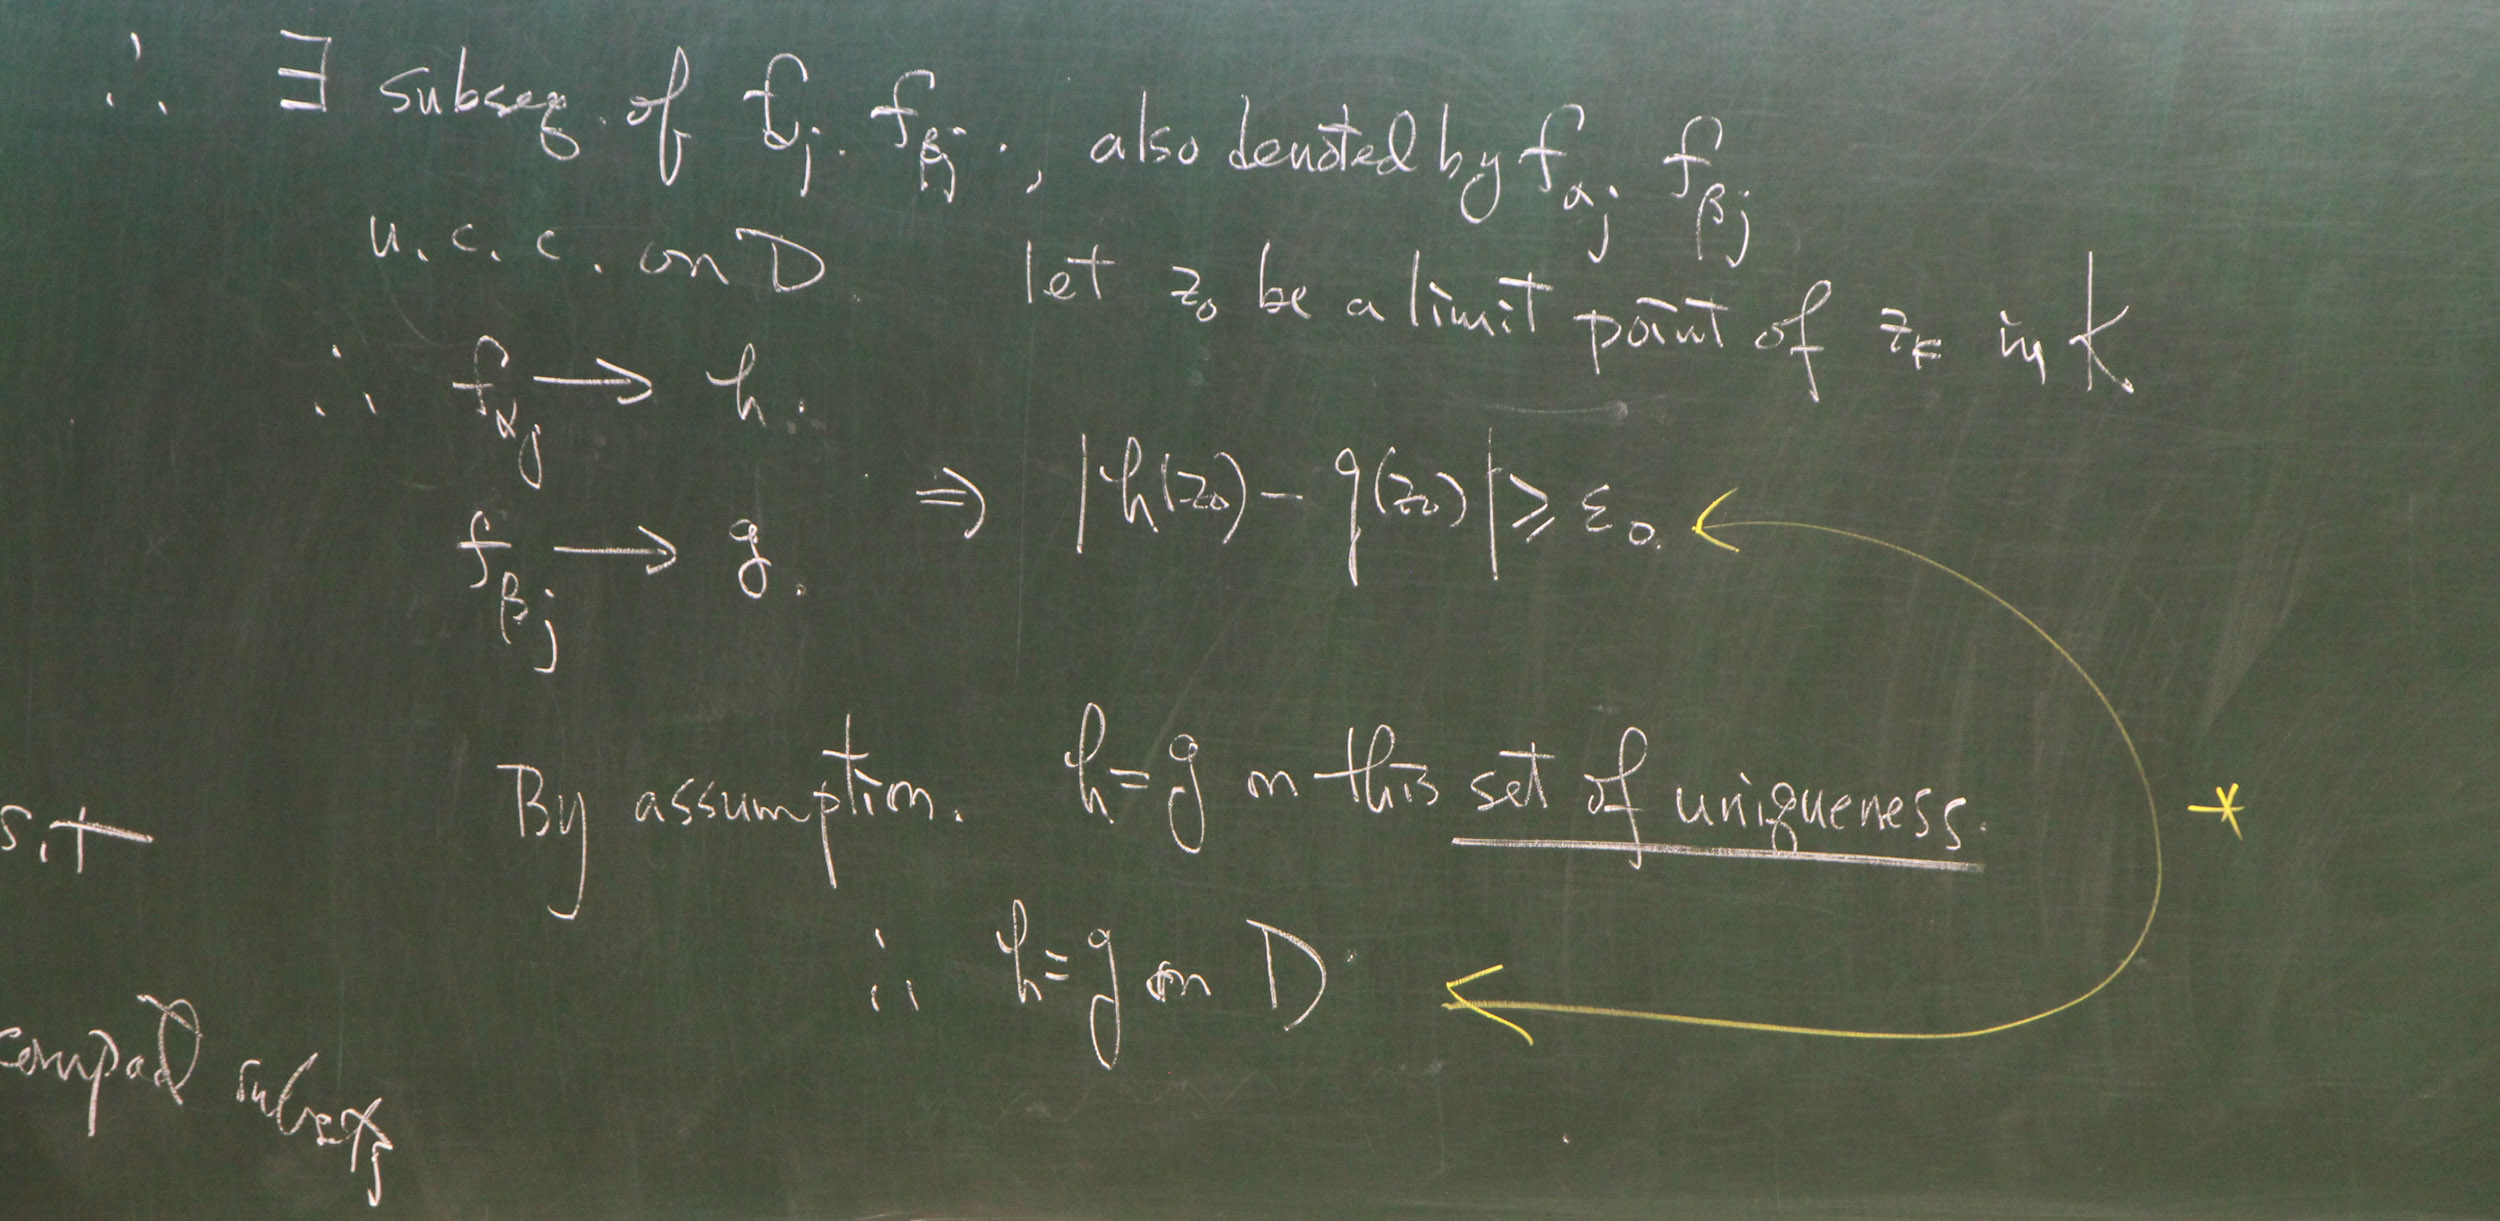 ∴ ∃ subseq. of f_αj. f_βj., also denoted by f_αj. f_βj
u.c.c. on D. let z₀ be a limit point of z_k in K
∴ f_αj → h.
⇒ |h(z₀) - g(z₀)| ≥ ε₀.
f_βj → g.
By assumption. h = g on this set of uniqueness.
s.t
*
∴ h = g on D.
compact